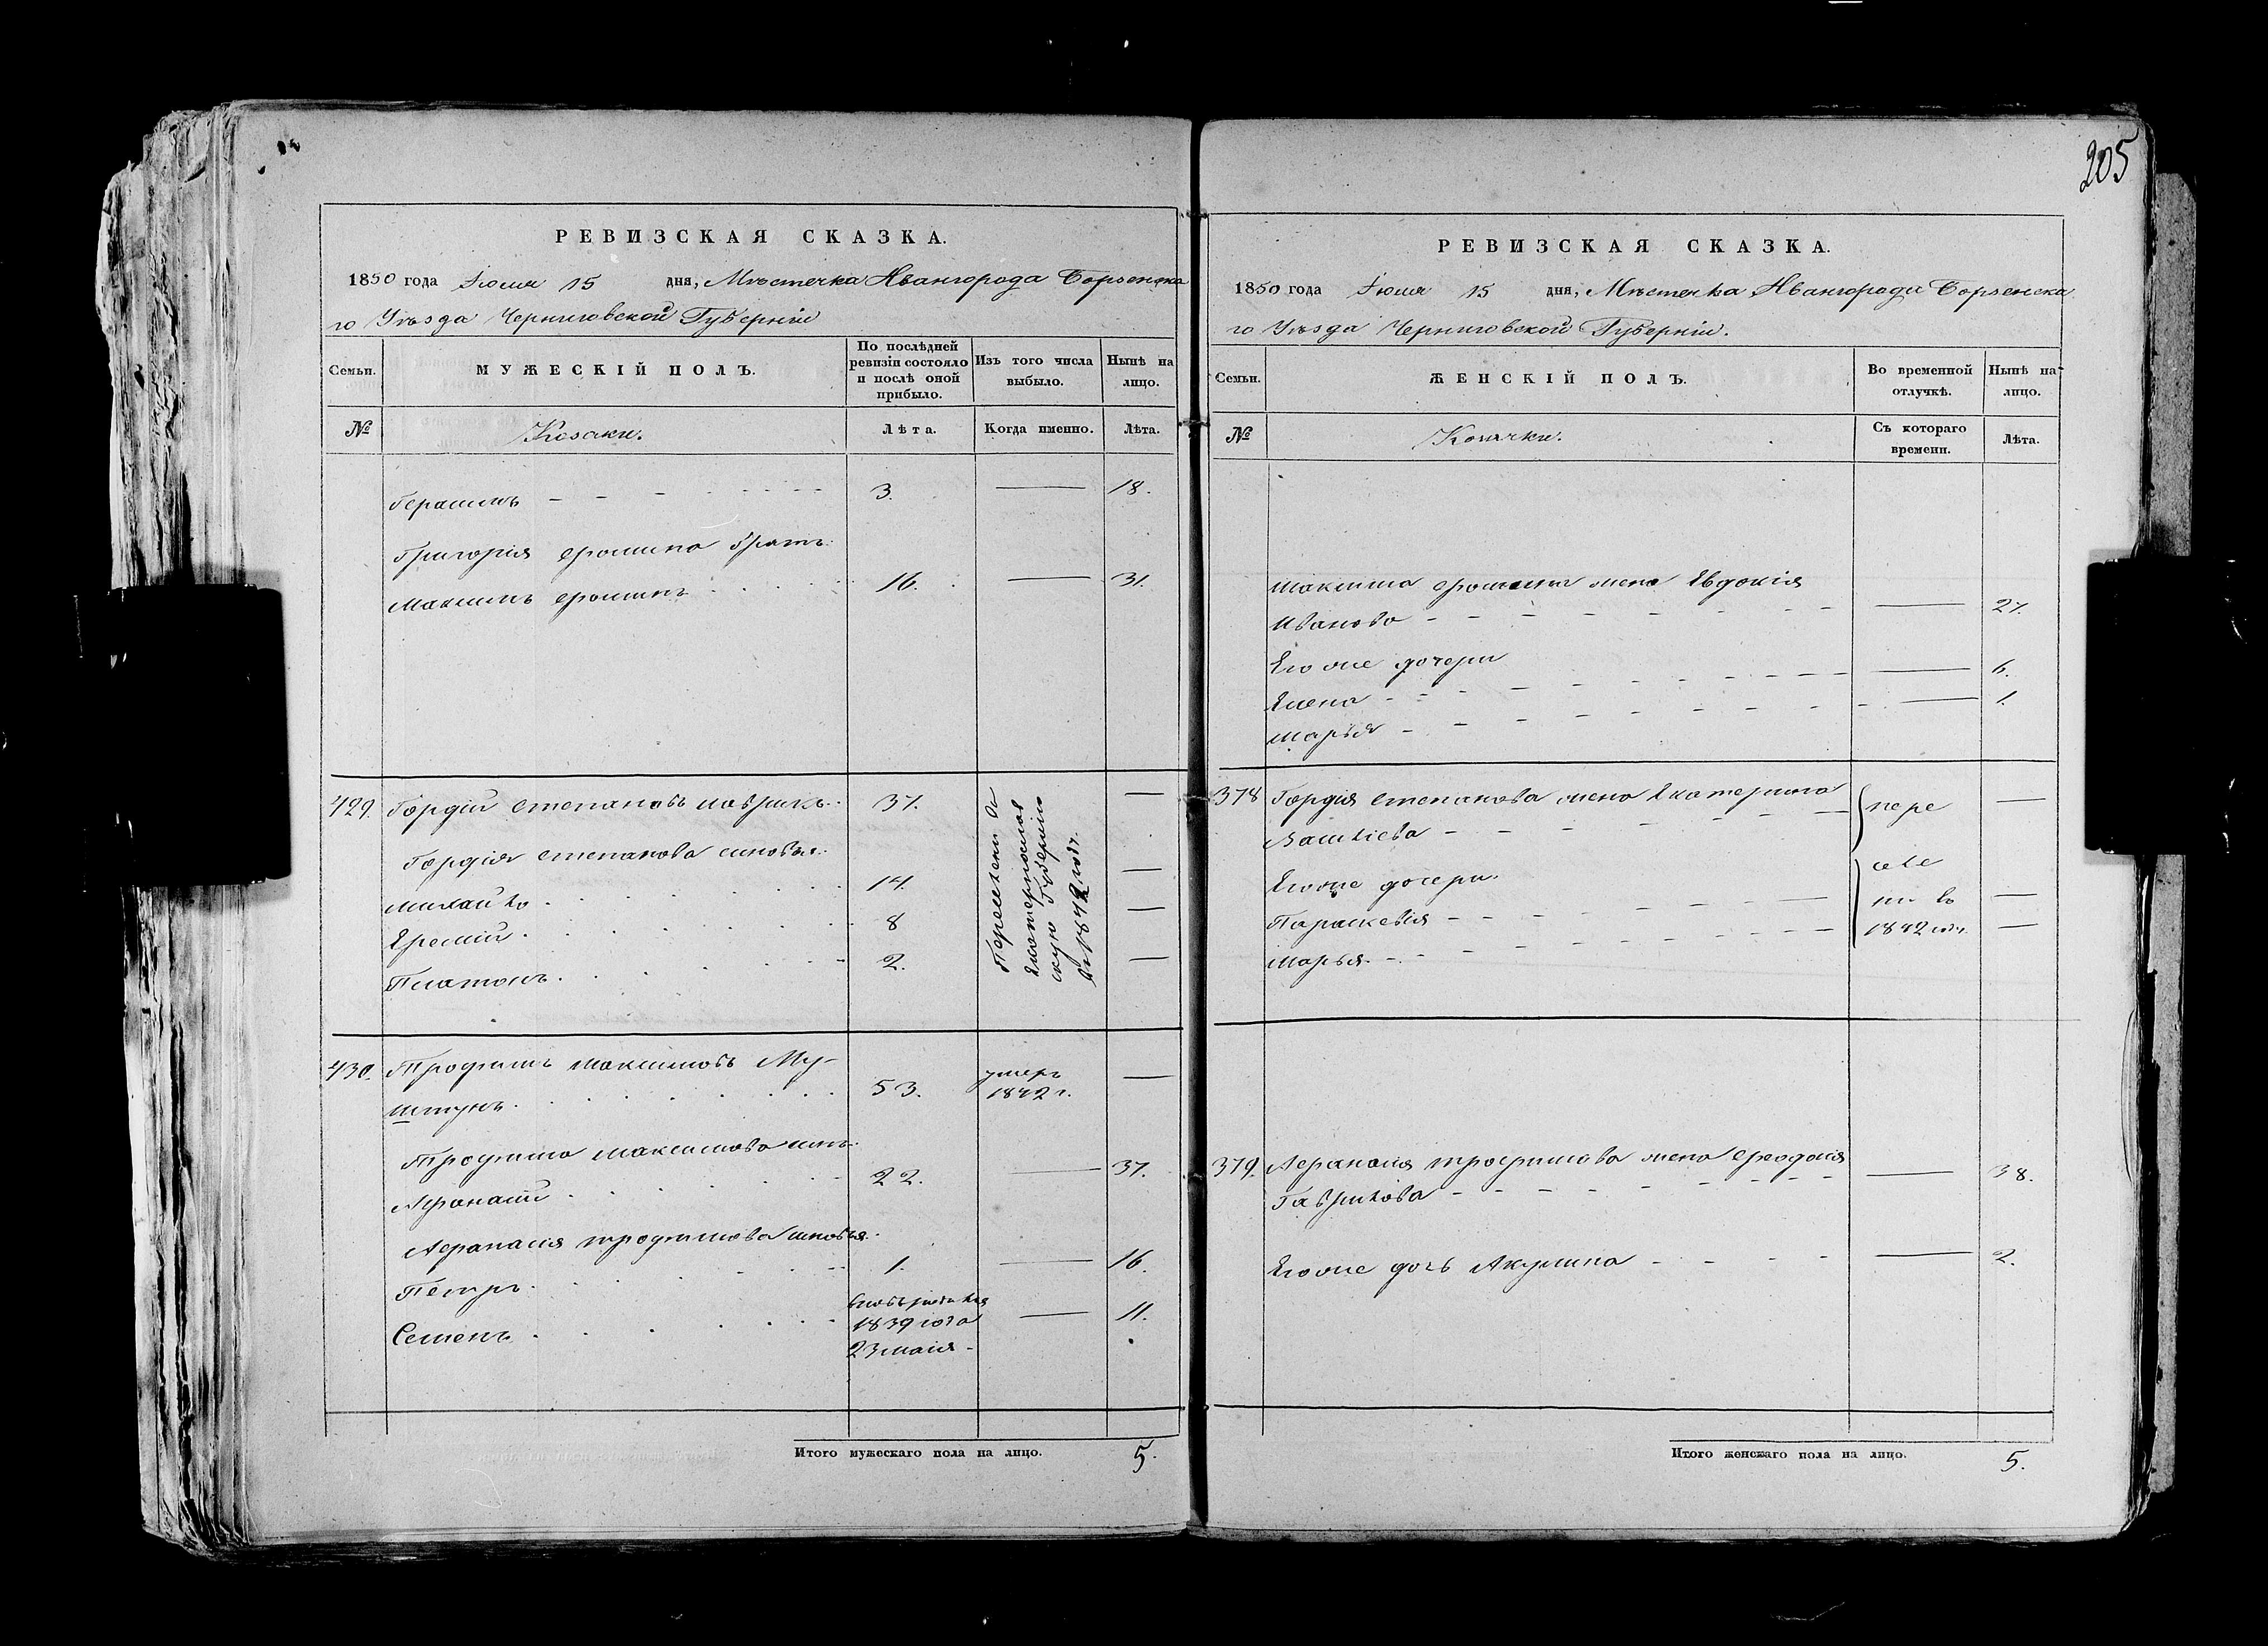 205
РЕВИЗСКАЯ СКАЗКА.
1850 года Іюля 15 дня, Мѣстечка Ивангорода Борзенска
го Уѣзда Черниговской Губерніи
Семьи.
МУЖЕСКІЙ ПОЛЪ.
По послѣдней ревизіи состояло и послѣ оной прибыло.
Изъ того числа выбыло.
Нынѣ на лицо.
№
Козаки.
Лѣта.
Когда именно.
Лѣта.
Герасимъ 3. 18.
Григорія Ерошина братъ
Максимъ Ерошинъ 16. 31.
429. Гордій Степановъ 37.
Гордія Степанова сыновья:
Михайло 14.
Еремій 8
Платонъ 2.
Переселены въ
Екатеринослав
скую Губернію
въ 1842 году.
430. Трофимъ Максимовъ Му-
штукъ 53. умеръ
1842 г.
Трофима Максимова сынъ
Афанасій 22. 37.
Афанасія Трофимова сыновья
Петръ 1. 16.
Семенъ 1839 года 11.
23 маія
Итого мужескаго пола на лицо. 5.
РЕВИЗСКАЯ СКАЗКА.
1850 года Іюля 15 дня, Мѣстечка Ивангорода Борзенска
го Уѣзда Черниговской Губерніи.
Семьи.
ЖЕНСКІЙ ПОЛЪ.
Во временной отлучкѣ.
Нынѣ на лицо.
№
Козачки.
Съ котораго времени.
Лѣта.
Максима Ерошина жена Евдокія
Иванова 27.
Его же дочери
Елена 6.
Марья 1.
378 Гордія Степанова жена Екатерина
Его же дочери.
Параскевія
Марья
пере
селе
ны въ
1842 году.
379. Афанасія Трофимова жена Феодосія
Гаврилова 38.
Его же дочь Акулина 2.
Итого женскаго пола на лицо. 5.